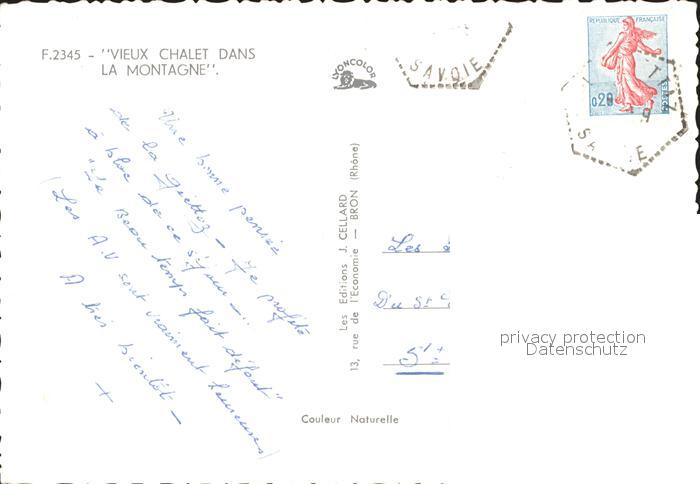 F.2345 - "VIEUX CHALET DANS
LA MONTAGNE".
LYONCOLOR
SAVOIE
REPUBLIQUE FRANÇAISE
0,20
POSTES
SA IE
Une bonne pensée
de la Giettaz - Je profite
à bloc de ce séjour -
"Le Beau temps fait défaut"
(Les A.V sont vraiment heureuses)
A très bientôt -
+
Les Editions J. CELLARD
13, rue de l'Economie — BRON (Rhône)
Les
Du St
St
privacy protection
Datenschutz
Couleur Naturelle